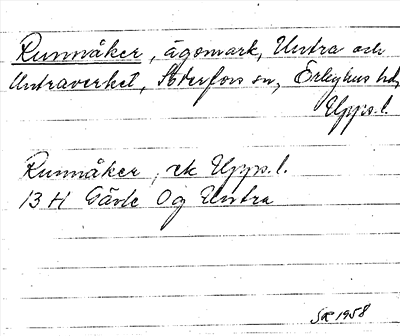 Runnåker, ägomark, Untra och
Untraverket, Söderfors sn, Örbyhus hd,
Upps.l.
Runnåker, ek Upps.l.
13 H Gävle Og Untra
SR 1958